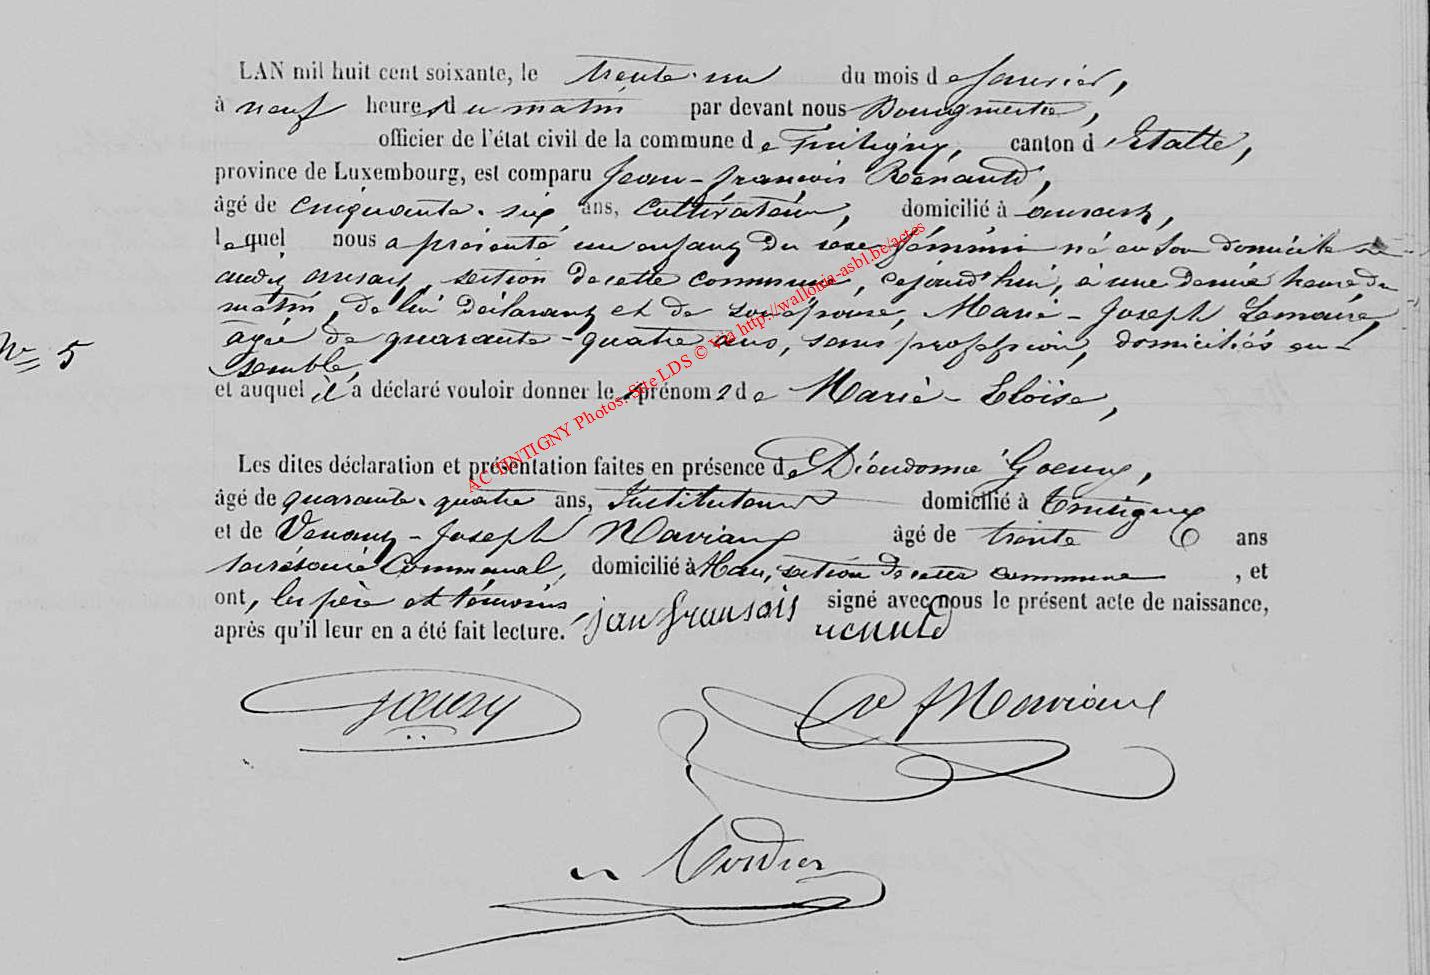 LAN mil huit cent soixante, le trente-un du mois de Janvier,
à neuf heures du matin par devant nous Bourgmestre,
officier de l'état civil de la commune de Tintigny, canton d'Etalle,
province de Luxembourg, est comparu Jean-françois Renauld,
âgé de cinquante-six ans, cultivateur, domicilié à ansart,
lequel nous a présenté un enfant du sexe féminin né en son domicile
audit ansart, section de cette commune, cejourd'hui, à une demie heure du
matin, de lui déclarant et de son épouse, Marie-Joseph Lemaire,
âgée de quarante-quatre ans, sans profession, domiciliés en-
N° 5
semble,
et auquel il a déclaré vouloir donner les prénoms de Marie-Eloïse,
Les dites déclaration et présentation faites en présence de Dieudonné Goeury,
âgé de quarante-quatre ans, Instituteur domicilié à Tintigny
et de Venant-Joseph Maviaux âgé de trente ans
secrétaire Communal, domicilié à Han, section de cette commune, et
ont, les père et témoins signé avec nous le présent acte de naissance,
après qu'il leur en a été fait lecture. jan fransois renauld
Goeury
V J Maviaux
Cordier
AC TINTIGNY Photos: Site LDS © Via http://wallonia-asbl.be/actes